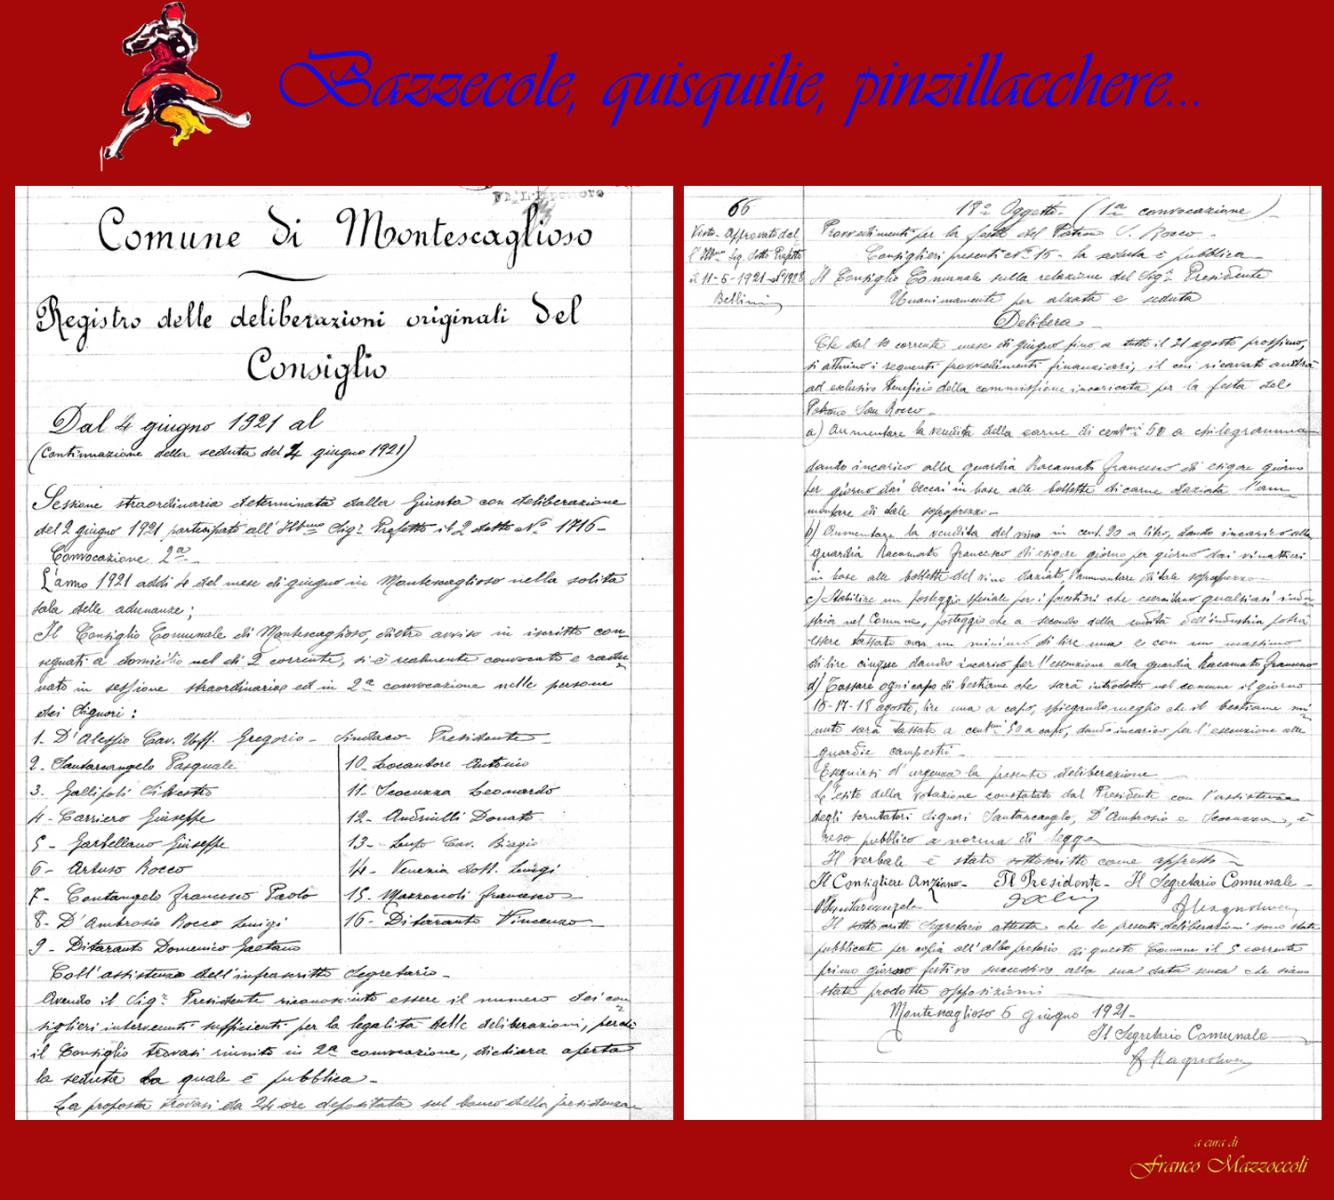 Bazzecole, quisquilie, pinzillacchere...
Comune di Montescaglioso
Registro delle deliberazioni originali del
Consiglio
Dal 4 giugno 1921 al
(Continuazione della seduta del 4 giugno 1921)
Sessione straordinaria determinata dalla Giunta con deliberazione
del 2 giugno 1921 partecipata all'Ill.mo Sig.r Prefetto il 2 detto N.o 1716-
Convocazione 2a-
L'anno 1921 addì 4 del mese di giugno in Montescaglioso nella solita
sala delle adunanze;
Il Consiglio Comunale di Montescaglioso, dietro avviso in iscritto con-
segnati a domicilio nel dì 2 corrente, si è realmente convocato e radu-
nato in sessione straordinaria ed in 2a convocazione nelle persone
dei Signori:
1. D'Alessio Cav. Uff. Gregorio - Sindaco Presidente -
2. Santarcangelo Pasquale
3. Gallipoli Silvestro
4- Carriero Giuseppe
5- Garbellano Giuseppe
6- Artuso Rocco
7- Contangelo Francesco Paolo
8- D'Ambrosio Rocco Luigi
9- Ditaranto Domenico Gaetano
10. Locantore Antonio
11. Scocuzza Leonardo
12- Andriulli Donato
13- Lupo Cav. Biagio
14- Venezia Dott. Luigi
15. Mazzoccoli Francesco
16- Ditaranto Vincenzo
Coll'assistenza dell'infrascritto Segretario-
Avendo il Sig.r Presidente riconosciuto essere il numero dei con-
siglieri intervenuti sufficienti per la legalità delle deliberazioni, perchè
il Consiglio trovasi riunito in 2a convocazione, dichiara aperta
la seduta la quale è pubblica-
La proposta trovasi da 24 ore depositata sul banco della presidenza
66
Visto- Approvato dal
l'Ill.mo Sig. Sotto Prefetto
Bellini
Oggetto- (1a convocazione)
Provvedimenti per la festa del Patrono S. Rocco-
Consiglieri presenti N.o 15- la seduta è pubblica-
Il Consiglio Comunale sulla relazione del Sig.r Presidente
Unanimamente per alzata e seduta
Delibera-
Che dal corrente mese di giugno fino a tutto il 21 agosto prossimo,
si attuino i seguenti provvedimenti finanziari, il cui ricavato andrà
ad esclusivo beneficio della commissione incaricata per la festa del
Patrono San Rocco-
a) Aumentare la vendita della carne di cent.mi 50 a chilogramma
dando incarico alla guardia Racamato Francesco di esigere giorno
per giorno dai beccai in base alle bollette di carne daziata l'am-
montare di tale soprapprezzo-
b) Aumentare la vendita del vino in cent. 20 a litro, dando incarico alla
guardia Racamato Francesco di esigere giorno per giorno dai vinattieri
in base alle bollette del vino daziato, l'ammontare di tale soprapprezzo-
c) Stabilire un posteggio speciale per i forestieri che esercitano qualsiasi indu-
stria nel Comune, posteggio che a secondo della entità dell'industria potrà
essere tassato con un minimo di lire una e con un massimo
di lire cinque dando incarico per l'esenzione alla guardia Racamato Francesco
d) Tassare ogni capo di bestiame che sarà introdotto nel comune il giorno
16-17-18 agosto, lire una a capo, spiegando meglio che il bestiame mi-
nuto sarà tassato a cent.mi 50 a capo, dando incarico per l'esenzione alle
guardie campestri-
Eseguirsi d'urgenza la presente deliberazione
L'esito della votazione constatato dal Presidente con l'assistenza
degli scrutatori Signori Santarcangelo, D'Ambrosio e Scocuzza, è
reso pubblico a norma di legge
Il verbale è stato sottoscritto come appresso-
Il Consigliere Anziano- Il Presidente- Il Segretario Comunale-
P. Santarcangelo
Il sottoscritto Segretario attesta che le presenti deliberazioni sono state
pubblicate per copia all'albo pretorio di questo Comune il 5 corrente
primo giorno festivo successivo alla sua data senza che siano
state prodotte opposizioni
Montescaglioso 6 giugno 1921-
Il Segretario Comunale
a cura di
Franco Mazzoccoli